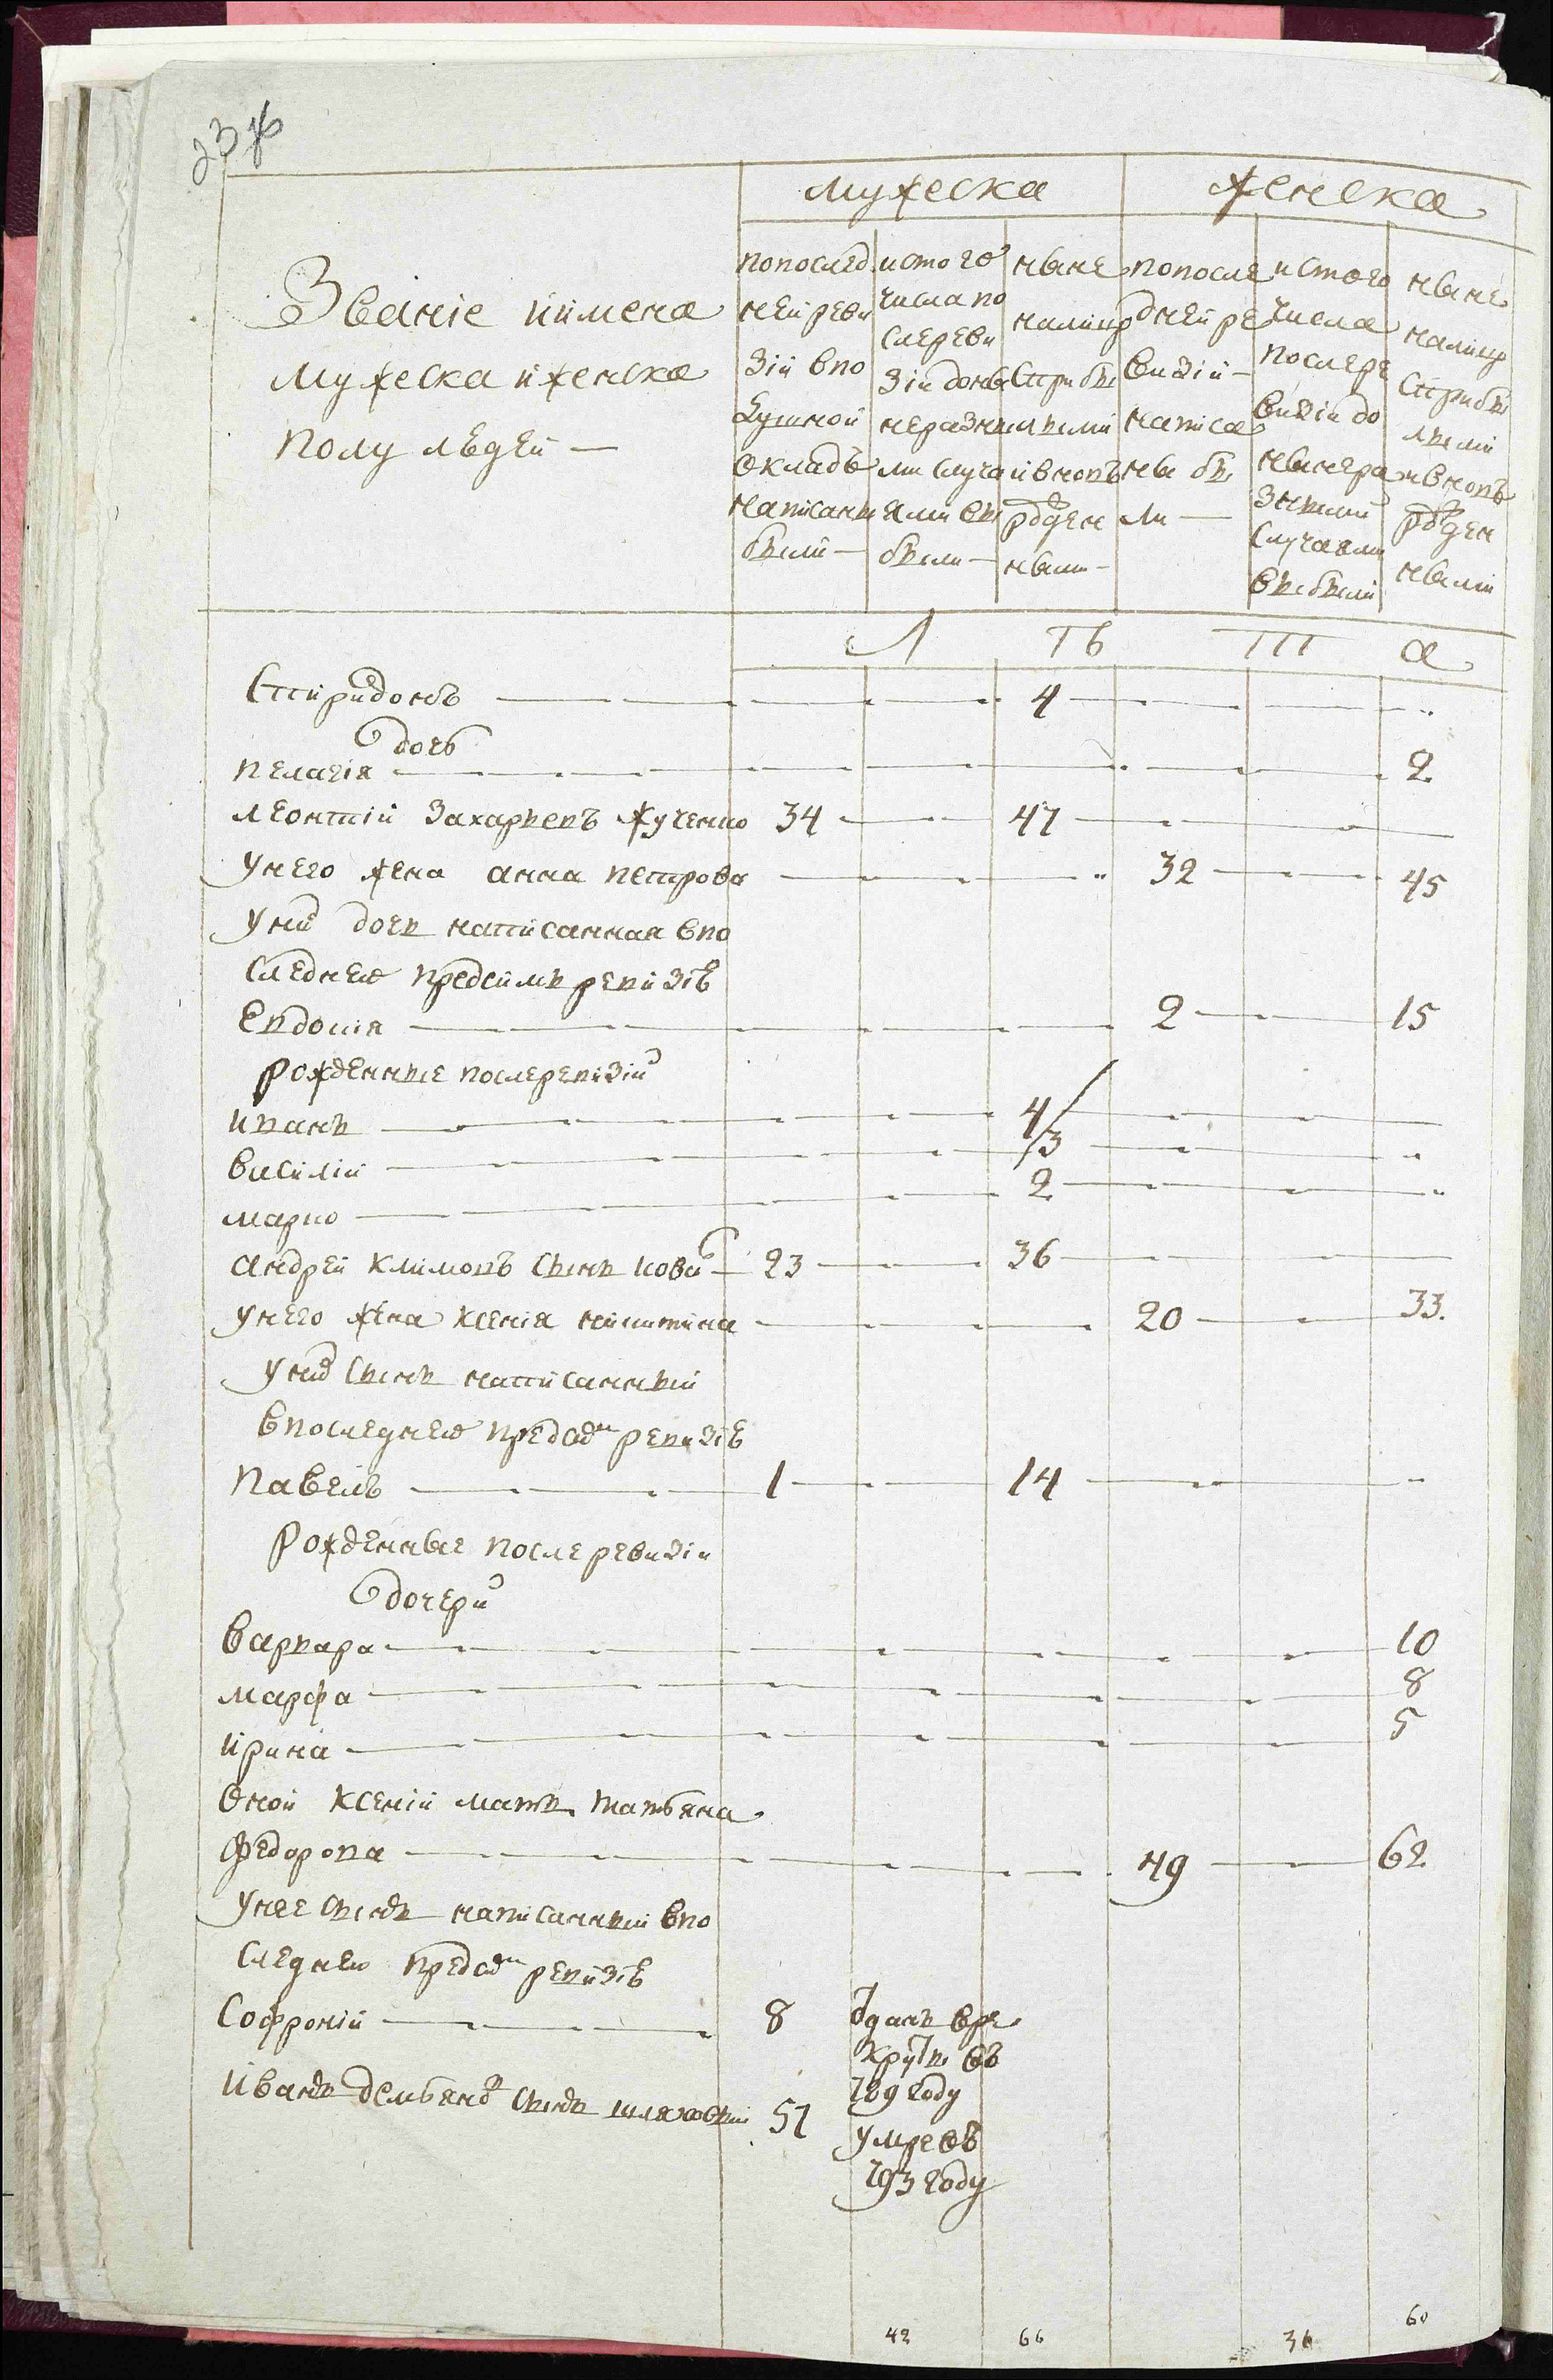 мужеска женска
Званіе иимена
мужеска иженска
полу людей —
попослед
ней реви
зіи впо
душной
окладъ
написаны
были —
истого
числа по
слереви
зіи доны
неразны
ми случа
ями вы
были —
ныне
налицо
сприбы
лыми
ивновъ
рожден
ными —
попосле
дней ре
визіи —
написа
ны бы
ли —
истого
числа
послере
визіи до
нынера
зными
случаями
выбыли
ныне
налицо
сприбы
лыми
ивновъ
рожден
ными
Л ѣ т а
Спиридонъ — 4 —
дочь
пелагія — 2
леонтій Захарьевъ Жученко 34 — 47 —
унего жена анна петрова — 32 — 45
уних дочь написанная впо
следнею предсимъ ревизіъ
Евдокия — 2 — 15
рожденные послеревизіи
иванъ — 4
василій — 3 —
марко — 2 —
андрей климовъ сынъ 23 — 36 —
унего жена ксенія никитина — 20 — 33.
уних сынъ написанный
впоследнею предсим ревизіъ
павелъ — 1 — 14 —
Рожденные после ревизіи
дочери
варвара — 10
марфа — 8
ирина — 5
Оной ксеніи мать татьяна
Федорова — 49 — 62
унее сынъ написанный впо
следнею предсим ревизіъ
Софроній — 8 отданъ вре
круты въ
789 году
Иванъ демьянов сынъ 51 умре въ
793 году
42 66 36 60